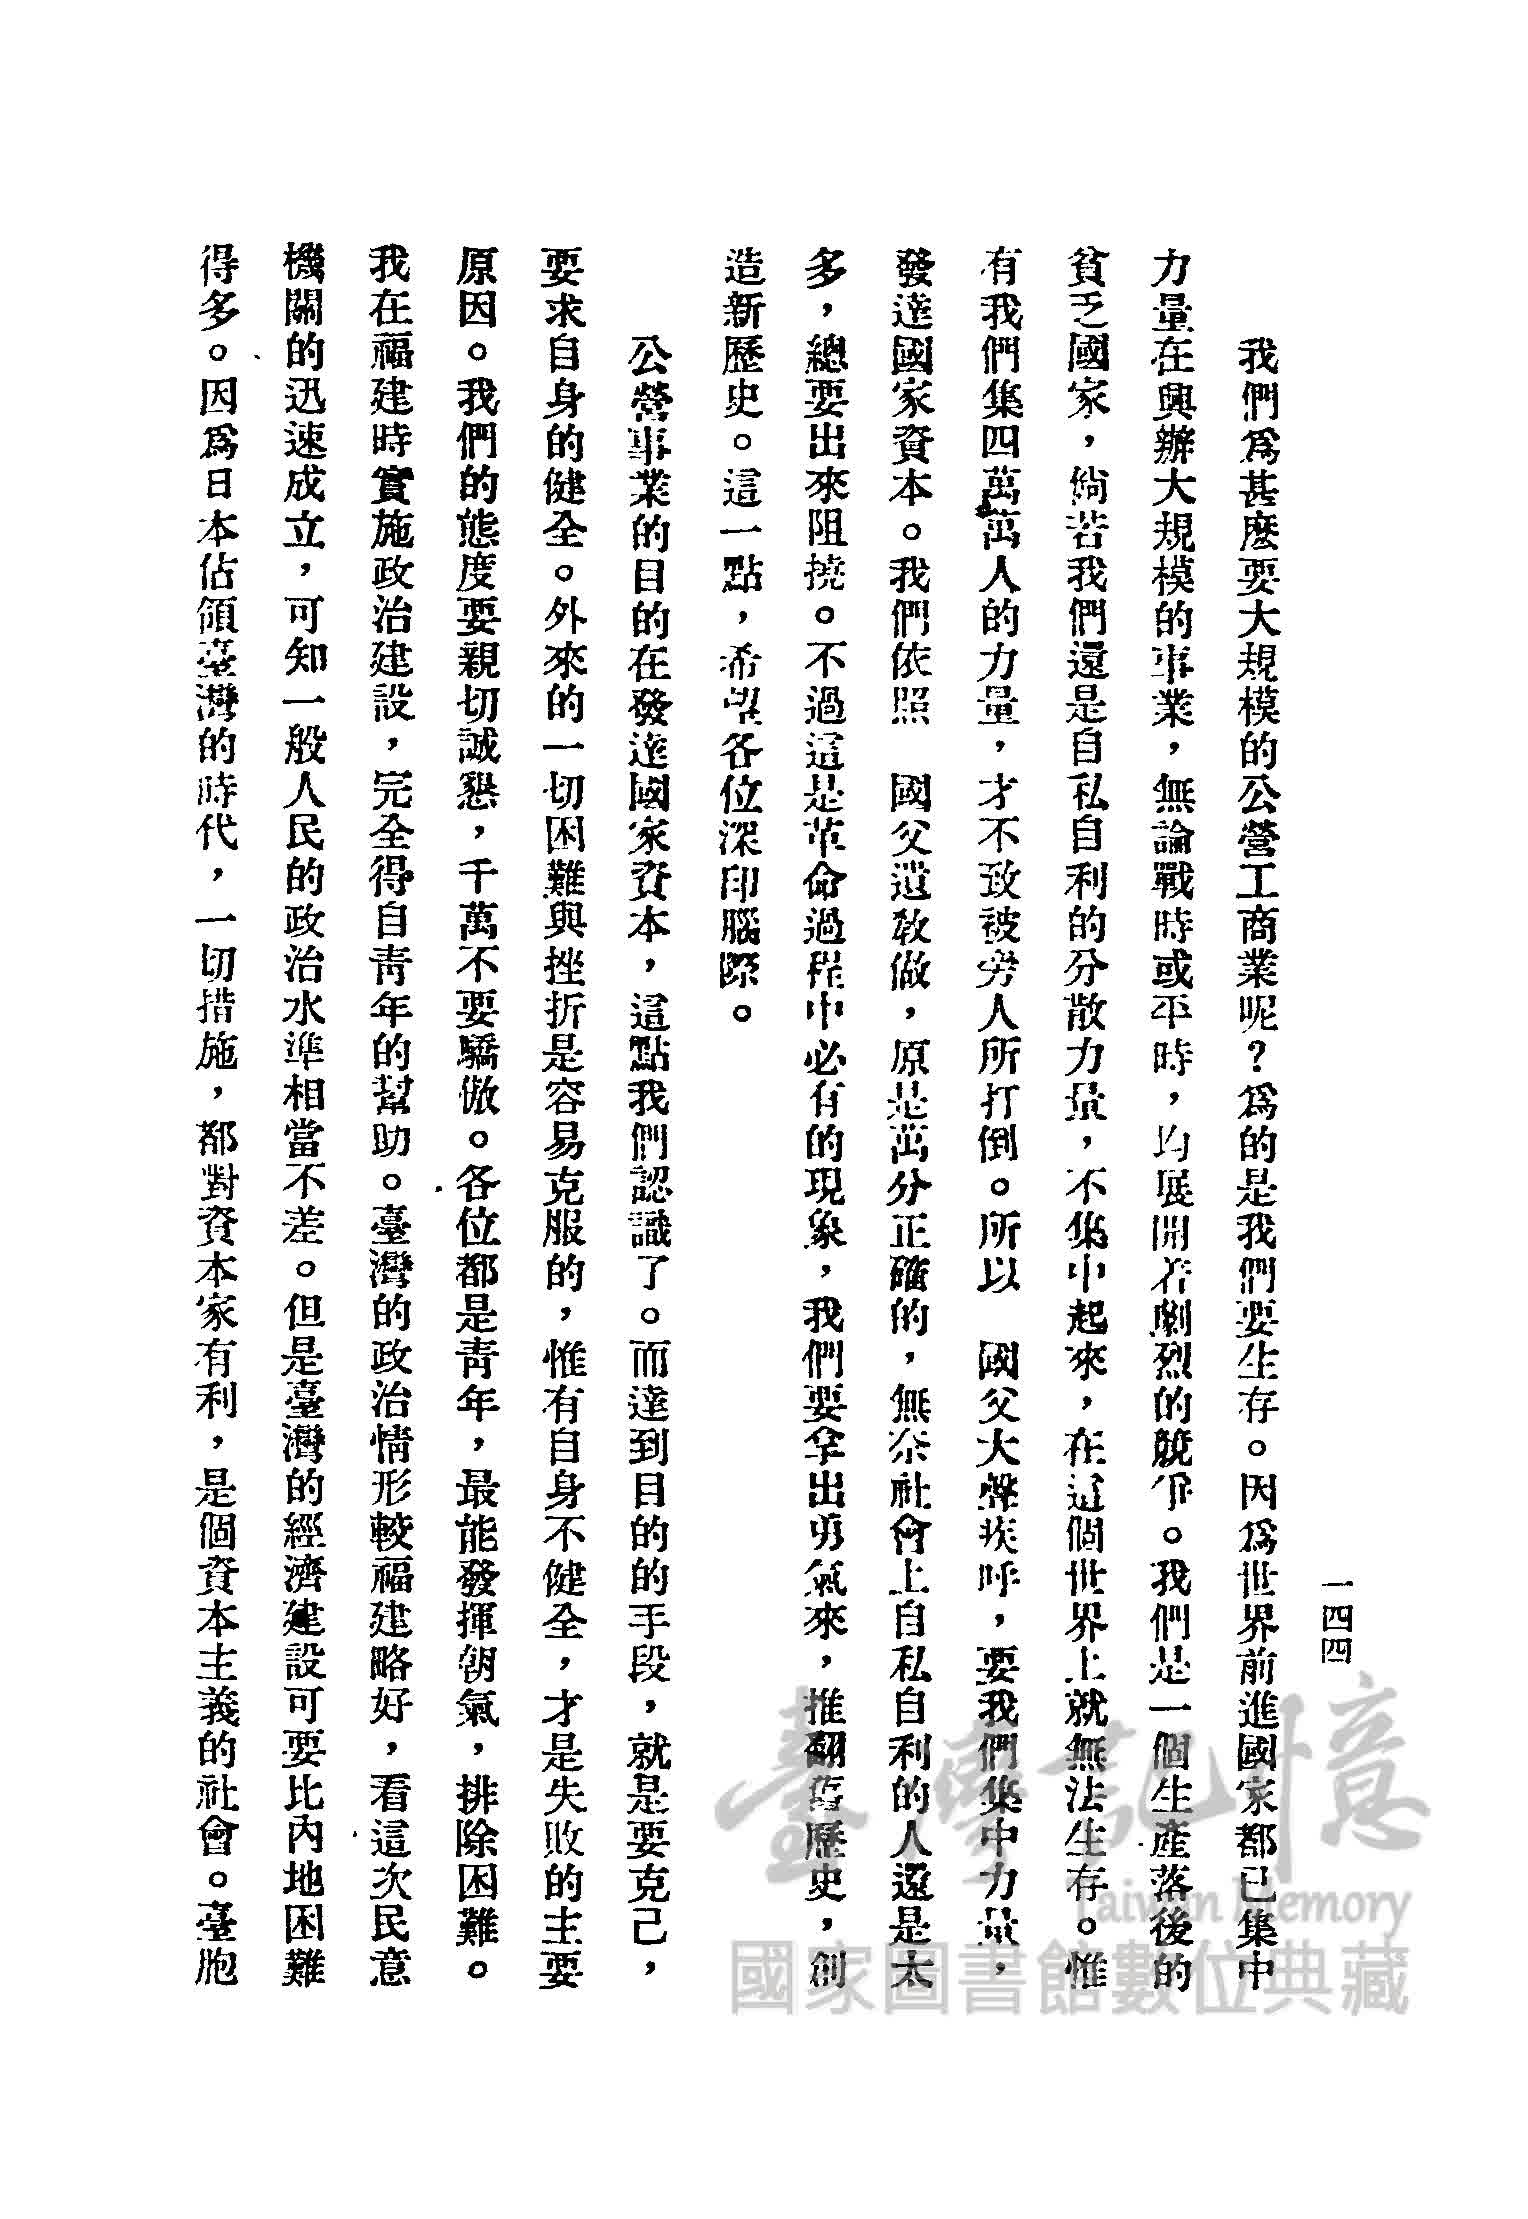 一四四
我們爲甚麽要大規模的公營工商業呢？爲的是我們要生存。因爲世界前進國家都已集中
力量在興辦大規模的事業，無論戰時或平時，均展開着劇烈的競爭。我們是一個生產落後的
貧乏國家，倘若我們還是自私自利的分散力量，不集中起來，在這個世界上就無法生存。惟
有我們集四萬萬人的力量，才不致被旁人所打倒。所以　國父大聲疾呼，要我們集中力量，
發達國家資本。我們依照　國父遺敎做，原是萬分正確的，無奈社會上自私自利的人還是太
多，總要出來阻撓。不過這是革命過程中必有的現象，我們要拿出勇氣來，推翻舊歷史，創
造新歷史。這一點，希望各位深印腦際。
公營事業的目的在發達國家資本，這點我們認識了。而達到目的的手段，就是要克己，
要求自身的健全。外來的一切困難與挫折是容易克服的，惟有自身不健全，才是失敗的主要
原因。我們的態度要親切誠懇，千萬不要驕傲。各位都是靑年，最能發揮朝氣，排除困難。
我在福建時實施政治建設，完全得自靑年的幫助。臺灣的政治情形較福建略好，看這次民意
機關的迅速成立，可知一般人民的政治水準相當不差。但是臺灣的經濟建設可要比內地困難
得多。因爲日本佔領臺灣的時代，一切措施，都對資本家有利，是個資本主義的社會。臺胞
臺灣記憶
Taiwan Memory
國家圖書館數位典藏